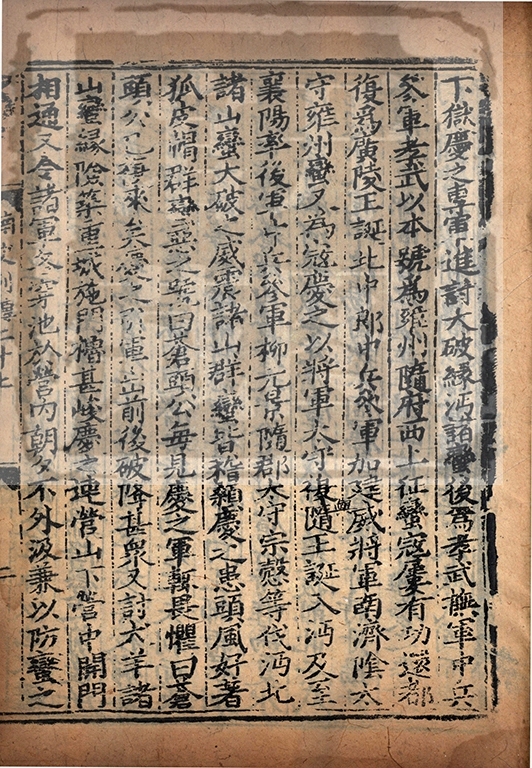 下獄慶之專軍進討大破緣沔諸蠻後爲孝武撫軍中兵
參軍孝武以本號爲雍州隨府西上征蠻寇屢有功還都
復爲廣陵王誕北中郎中兵參軍加建威將軍南濟陰太
守雍州蠻又爲寇慶之以將軍太守復與隨王誕入沔及至
襄陽率後軍中兵參軍柳元景隋郡太守宗慤等伐沔北
諸山蠻大破之威震諸山群蠻皆稽顙慶之患頭風好著
狐皮帽群蠻惡之號曰蒼頭公每見慶之軍輒畏懼曰蒼
頭公已復來矣慶之引軍出前後破降甚衆又討犬羊諸
山蠻緣險築重城施門櫓甚峻慶之連營山下營中開門
相通又令諸軍各穿池於營內朝夕不外汲兼以防蠻之